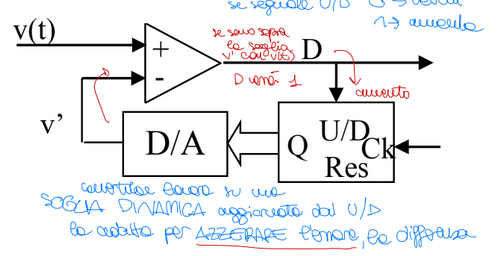 se segnale U/D 0→
1→ aumenta
v(t)
se sono sopra
la soglia
v' con v(t)
D
D sarà 1
aumento
+
-
v'
D/A
Q
U/D
Ck
Res
su una
SOGLIA DINAMICA aggiornata dal U/D
la adatta per AZZERARE l'errore, la differenza